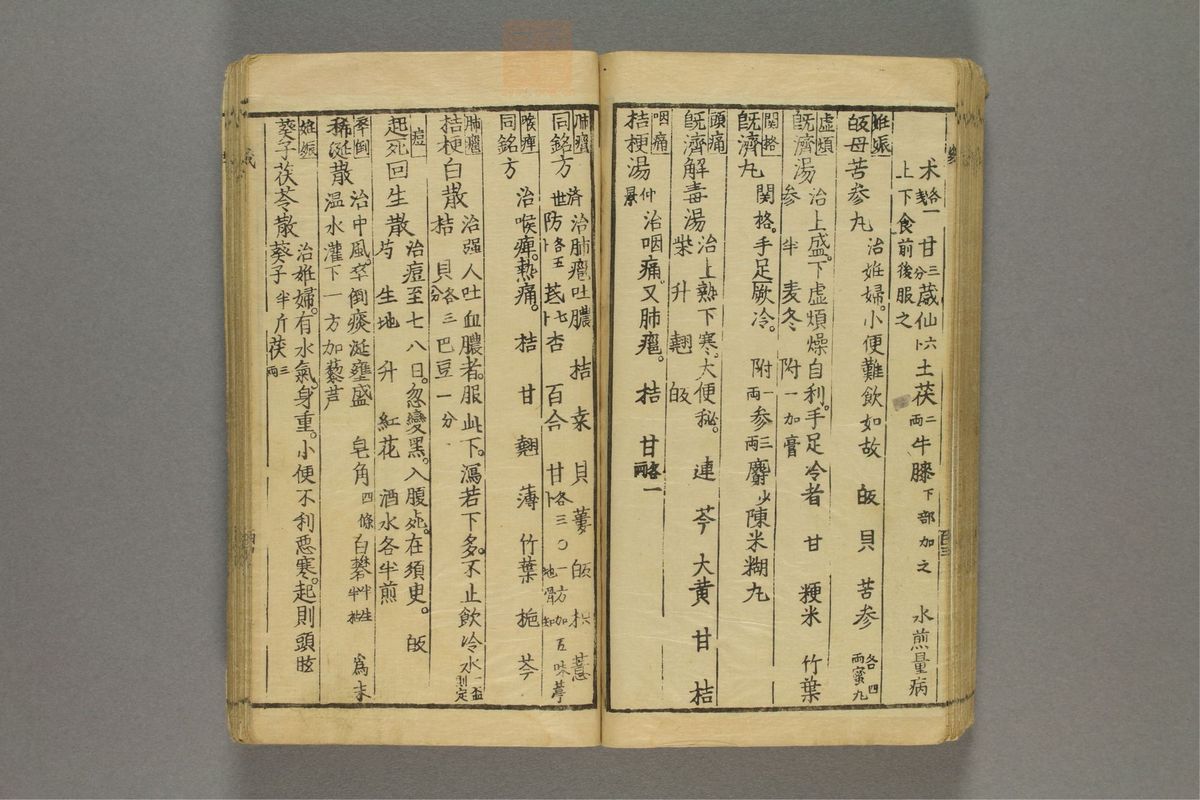 术 各一戔 甘 三分 葳仙 六卜 土茯 二両 牛膝 下部加之 水煎量病
上下食前後服之
妊娠
皈母苦参丸 治妊婦。小便難飲如故 皈 貝 苦参 各四両蜜丸
虚煩
既濟湯 治上盛。下虚煩燥自利。手足冷者 甘 粳米 竹葉
参 半 麦冬 附 一加膏
関格
既濟丸 関格。手足厥冷。附 一両 参 三両 麝 少 陳米糊丸
頭痛
既濟解毒湯 治上熱下寒。大便秘。連 芩 大黄 甘 桔
柴 升 翹 皈
咽痛
桔梗湯 仲景 治咽痛。又肺癰。桔 甘 各一両
肺癰
同銘方 済世 治肺癰吐膿 桔 桒 貝 蔞 皈 枳 薏
防 各五卜 芪 七卜 杏 百合 甘 各三卜 ○一方加五味葶地骨知
喉痺
同銘方 治喉痺。熱痛。桔 甘 翹 薄 竹葉 梔 芩
肺癰
桔梗白散 治强人吐血膿者。服此下。瀉若下多。不止飲冷水 一盃則定
桔 貝 各三分 巴豆 一分
痘
起死回生散 治痘至七八日。忽變黑。入腹死。在須臾。皈
芍 生地 升 紅花 酒水各半煎
卒倒
稀涎散 治中風。卒倒痰涎壅盛 皂角 四條 白礬 半生半枯 爲末
温水灌下一方加藜芦
妊娠
葵子茯苓散 治妊婦。有水氣身重。小便不利悪寒。起則頭眩
葵子 半斤 茯 三両